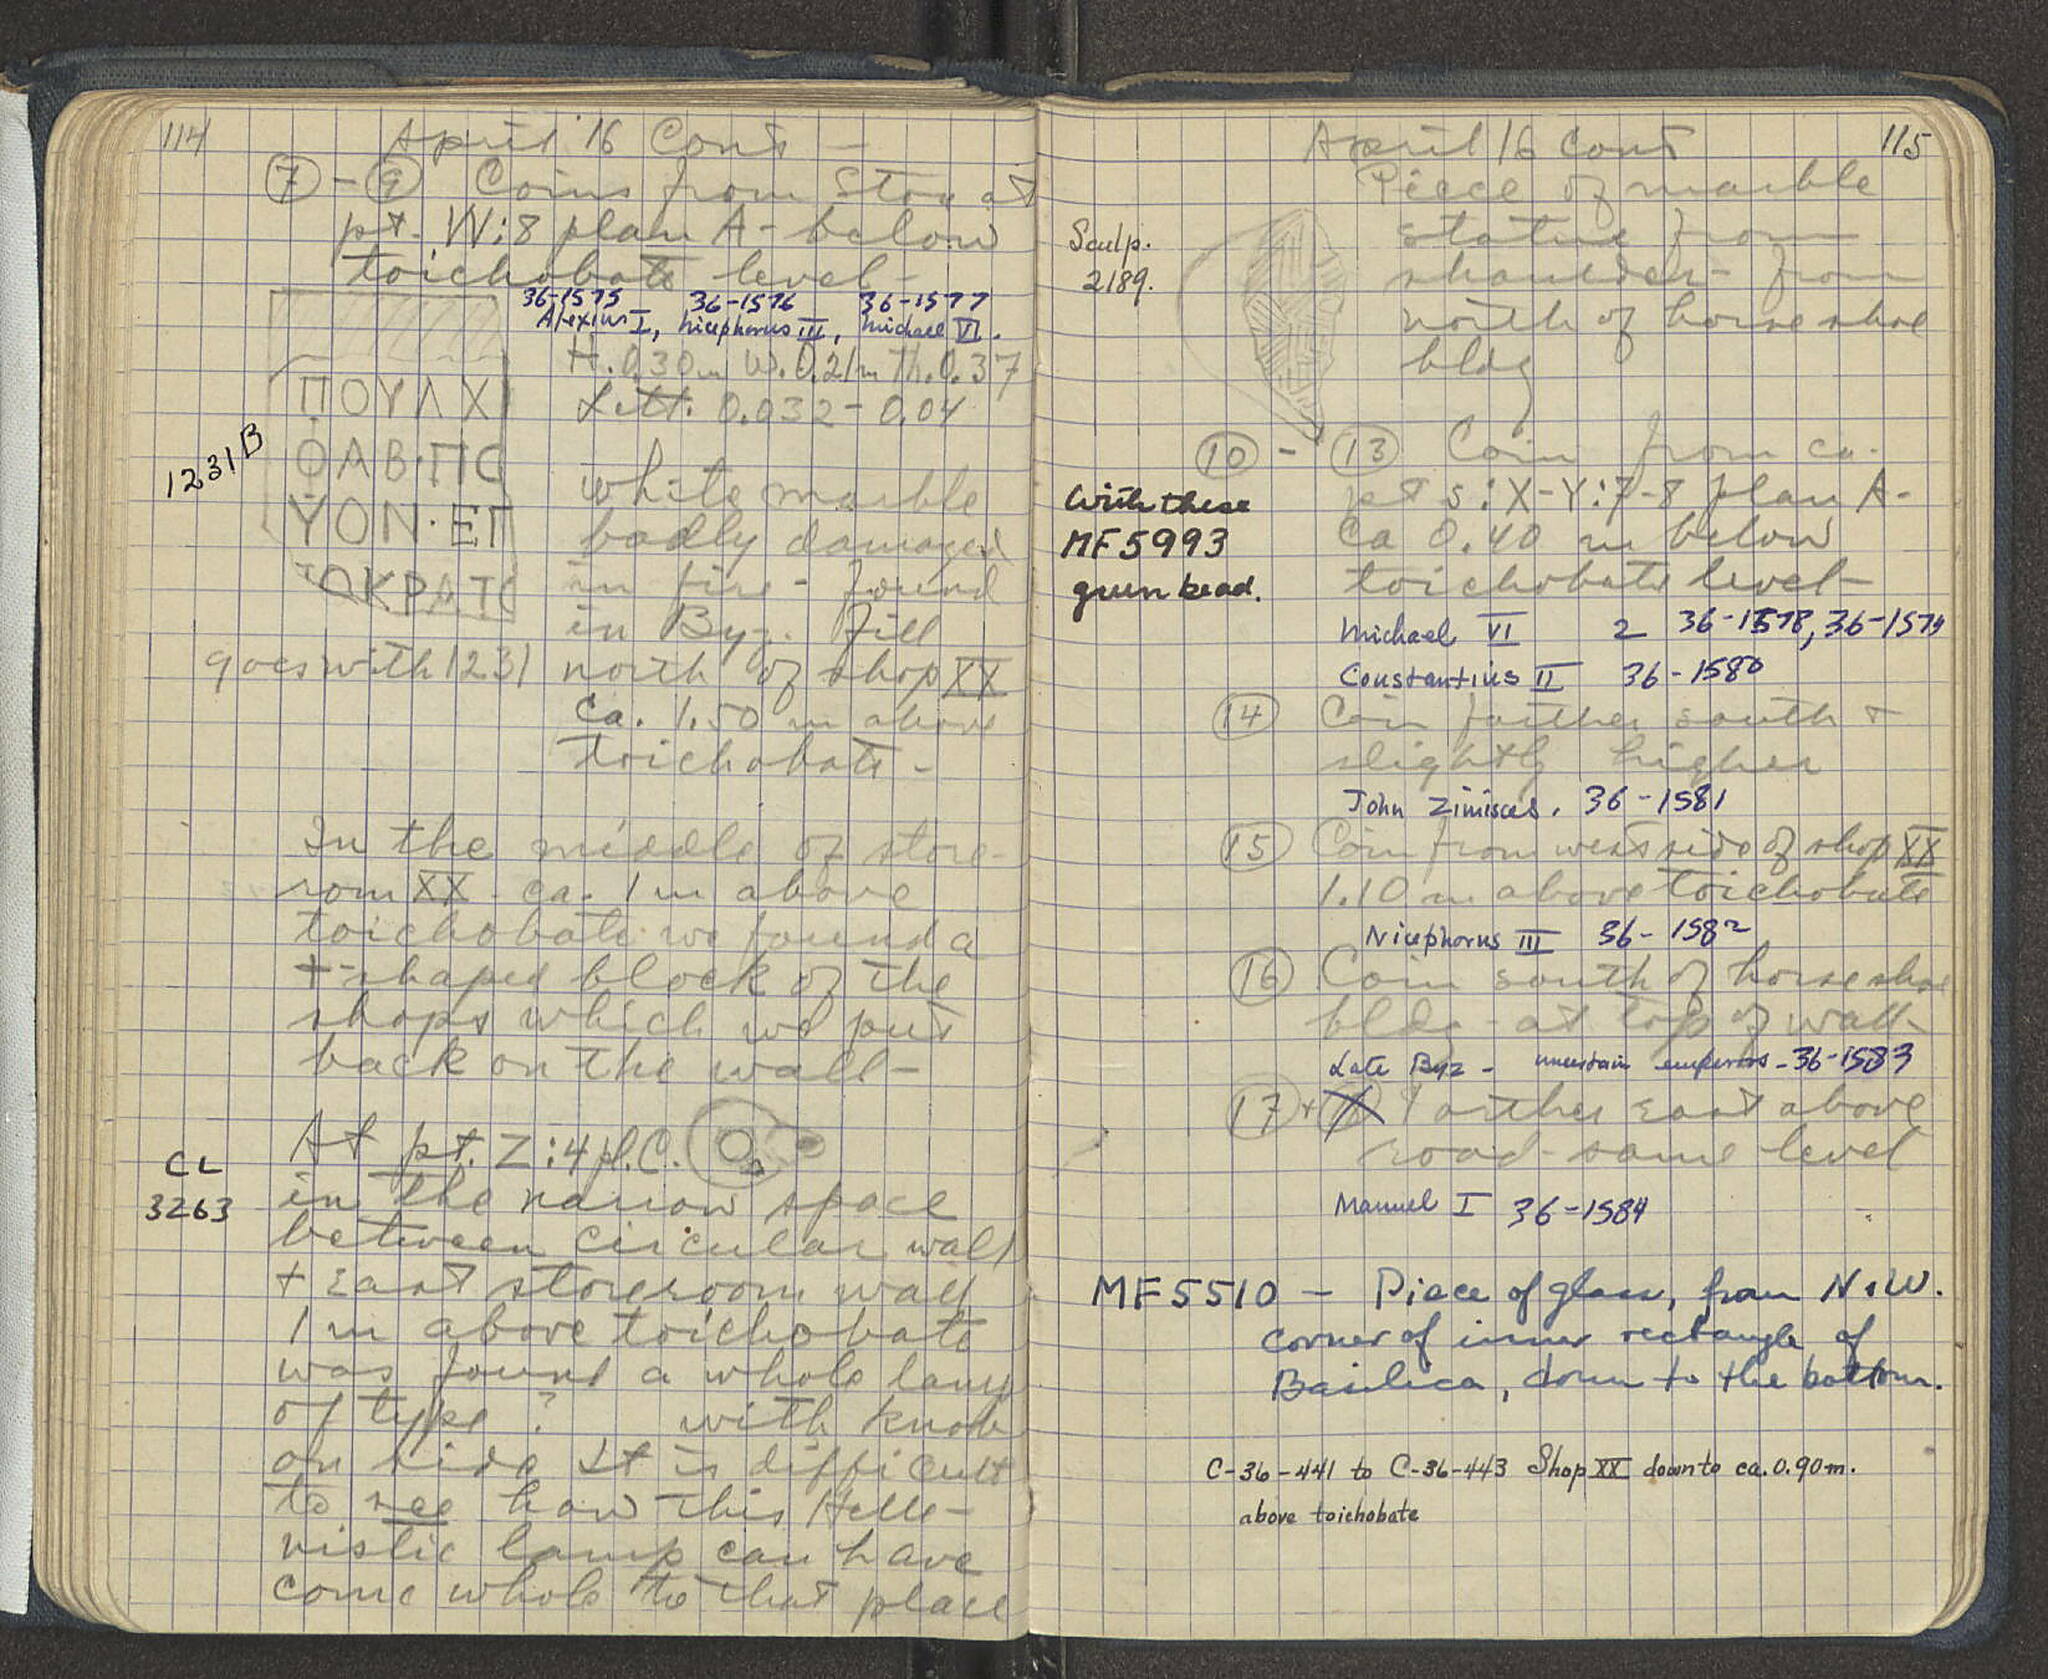 114
April 16 Cont -
7 - 9 Coins from Stoa at
pt. W:8 plan A - below
toichobate level -
36-1575 36-1576 36-1577
Alexius I, Nicephorus III, Michael VI.
H. 0.30m W. 0.21m Th. 0.37
Lett. 0.032 - 0.04
ΠΟΥΛΧ
ΟΑΒ·ΠΟ
ΥΟΝ·ΕΠ
ΤΟΚΡΑΤΟ
1231B
white marble
badly damaged
in fire - found
in Byz. fill
goes with 1231 north of shop XX
ca. 1.50 m above
toichobate -
In the middle of store-
rom XX ca. 1 m above
toichobate we found a
+-shaped block of the
shops which we put
back on the wall -
At pt. Z:4 pl. C.
CL
3263
in the narrow space
between circular wall
+ East storeroom wall
1 m above toichobate
was found a whole lamp
of type ? with knob
on side It is difficult
to see how this Helle-
nistic lamp can have
come whole to that place
115
April 16 Cont
Piece of marble
statue from
shoulder - from
north of horse shoe
bldg
Sculp.
2189.
10 - 13 Coin from ca.
pts: X-Y:7-8 plan A -
ca 0.40 m below
toichobate level -
with these
MF 5993
green bead.
Michael VI 2 36-1578, 36-1579
Constantius II 36-1580
14 Coin farther south +
slightly higher
John Zimisces. 36-1581
15 Coin from west side of shop XX
1.10 m above toichobate
Nicephorus III 36-1582
16 Coin south of horse shoe
bldg - at top of wall -
Late Byz - uncertain emperors - 36-1583
17 + 18 Farther East above
road - same level
Manuel I 36-1584
MF 5510 - Piece of glass, from N.W.
corner of inner rectangle of
Basilica, down to the bottom.
C-36-441 to C-36-443 Shop XX down to ca. 0.90 m.
above toichobate